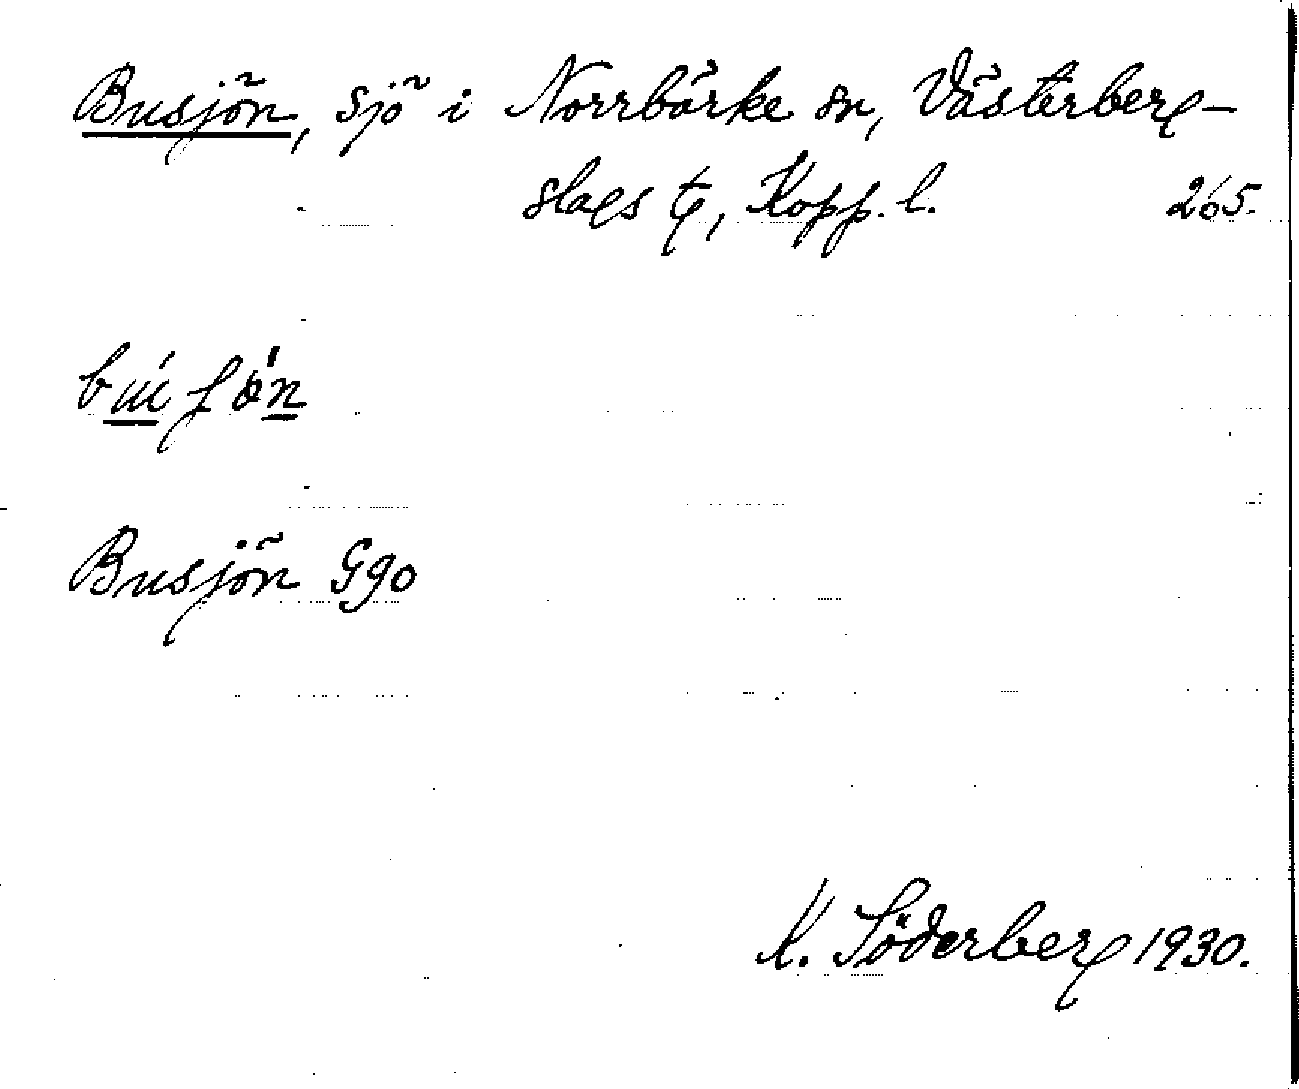 Busjön, sjö i Norrbärke sn, Västerberg-
slags tg, Kopp. l. 265.
Busjön G90
K. Söderberg 1930.